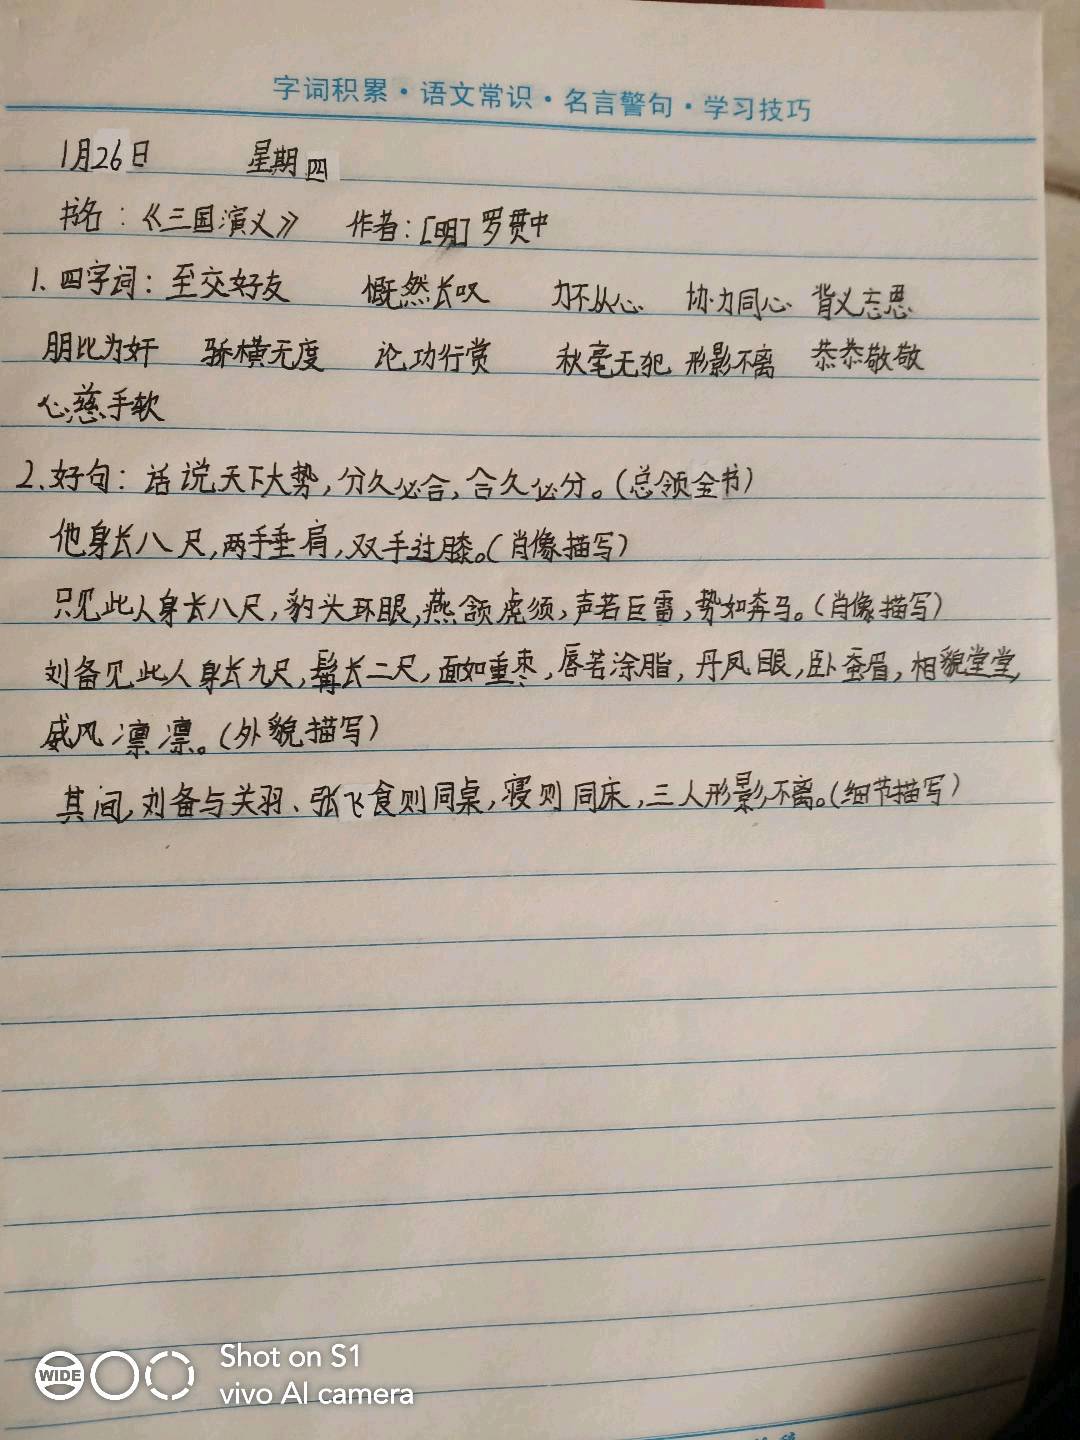 字词积累·语文常识·名言警句·学习技巧
1月26日 星期四
书名：《三国演义》 作者：[明]罗贯中
1.四字词：至交好友 慨然长叹 力不从心 协力同心 背义忘恩
朋比为奸 骄横无度 论功行赏 秋毫无犯 形影不离 恭恭敬敬
心慈手软
2.好句：话说天下大势，分久必合，合久必分。（总领全书）
他身长八尺，两手垂肩，双手过膝。（肖像描写）
只见此人身长八尺，豹头环眼，燕颔虎须，声若巨雷，势如奔马。（肖像描写）
刘备见此人身长九尺，髯长二尺，面如重枣，唇若涂脂，丹凤眼，卧蚕眉，相貌堂堂，
威风凛凛。（外貌描写）
其间，刘备与关羽、张飞食则同桌，寝则同床，三人形影不离。（细节描写）
WIDE
Shot on S1
vivo AI camera